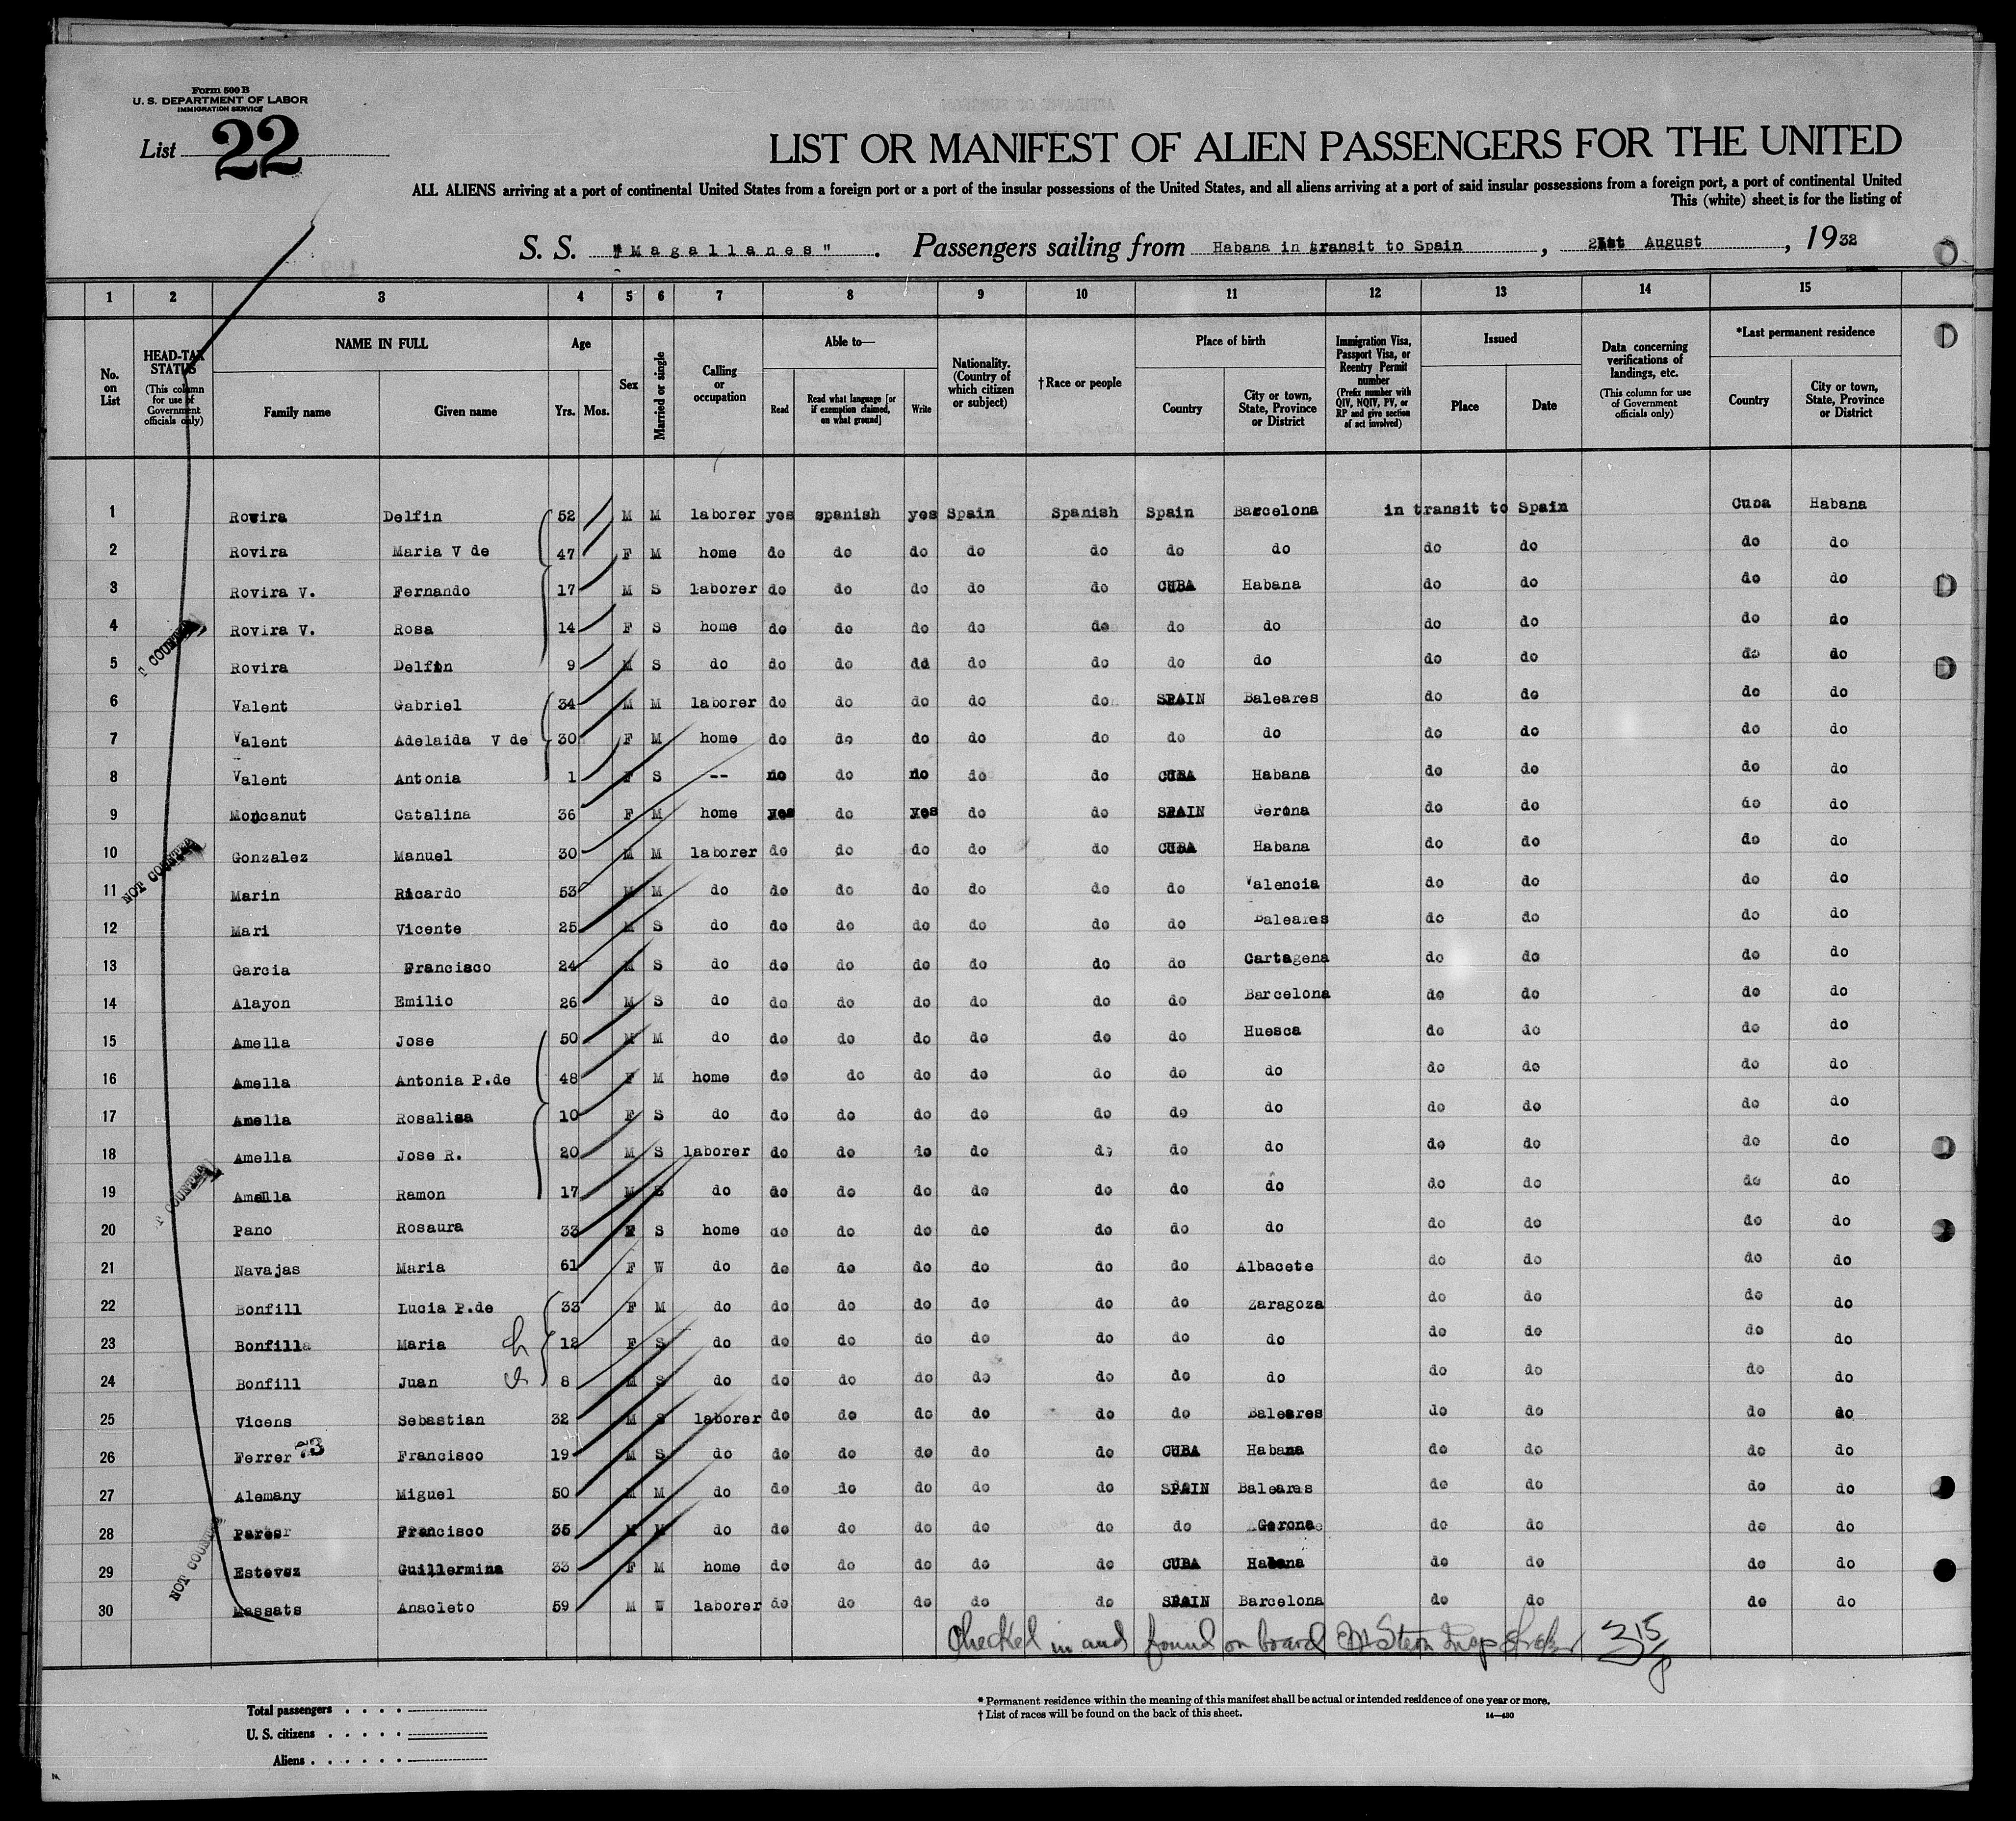 Form 500 B
U. S. DEPARTMENT OF LABOR
IMMIGRATION SERVICE
List 22
LIST OR MANIFEST OF ALIEN PASSENGERS FOR THE UNITED
ALL ALIENS arriving at a port of continental United States from a foreign port or a port of the insular possessions of the United States, and all aliens arriving at a port of said insular possessions from a foreign port, a port of continental United
This (white) sheet is for the listing of
S. S. "Magallanes". Passengers sailing from Habana in transit to Spain, 21st August, 1932
1 2 3 4 5 6 7 8 9 10 11 12 13 14 15
No. on List
HEAD-TAX STATUS (This column for use of Government officials only)
NAME IN FULL
Family name Given name
Age
Yrs. Mos.
Sex
Married or single
Calling or occupation
Able to—
Read Read what language [or if exemption claimed, on what ground] Write
Nationality. (Country of which citizen or subject)
† Race or people
Place of birth
Country City or town, State, Province or District
Immigration Visa, Passport Visa, or Reentry Permit number (Prefix number with QIV, NQIV, PV, or RP and give section of act involved)
Issued
Place Date
Data concerning verifications of landings, etc. (This column for use of Government officials only)
*Last permanent residence
Country City or town, State, Province or District
1 Rovira Delfin 52 M M laborer yes spanish yes Spain Spanish Spain Barcelona in transit to Spain Cuba Habana
2 Rovira Maria V de 47 F M home do do do do do do do do do do do
3 Rovira V. Fernando 17 M S laborer do do do do do CUBA Habana do do do do
4 Rovira V. Rosa 14 F S home do do do do do do do do do do do
5 Rovira Delfin 9 M S do do do do do do do do do do do do
6 Valent Gabriel 34 M M laborer do do do do do SPAIN Baleares do do do do
7 Valent Adelaida V de 30 F M home do do do do do do do do do do do
8 Valent Antonia 1 F S -- no do no do do CUBA Habana do do do do
9 Moncanut Catalina 36 F M home yes do yes do do SPAIN Gerona do do do do
10 Gonzalez Manuel 30 M M laborer do do do do do CUBA Habana do do do do
11 Marin Ricardo 53 M M do do do do do do do Valencia do do do do
12 Mari Vicente 25 M S do do do do do do do Baleares do do do do
13 Garcia Francisco 24 M S do do do do do do do Cartagena do do do do
14 Alayon Emilio 26 M S do do do do do do do Barcelona do do do do
15 Amella Jose 50 M M do do do do do do do Huesca do do do do
16 Amella Antonia P.de 48 F M home do do do do do do do do do do do
17 Amella Rosalisa 10 F S do do do do do do do do do do do do
18 Amella Jose R. 20 M S laborer do do do do do do do do do do do
19 Amella Ramon 17 M S do do do do do do do do do do do do
20 Pano Rosaura 33 F S home do do do do do do do do do do do
21 Navajas Maria 61 F W do do do do do do do Albacete do do do do
22 Bonfill Lucia P.de 33 F M do do do do do do do Zaragoza do do do do
23 Bonfilla Maria 12 F S do do do do do do do do do do do do
24 Bonfill Juan 8 M S do do do do do do do do do do do do
25 Vicens Sebastian 32 M S laborer do do do do do do Baleares do do do do
26 Ferrer 73 Francisco 19 M S do do do do do do CUBA Habana do do do do
27 Alemany Miguel 50 M M do do do do do do SPAIN Baleares do do do do
28 Francisco 35 M M do do do do do do do Gerona do do do do
29 Estevez Guillermina 33 F M home do do do do do CUBA Habana do do do do
30 Massats Anacleto 59 M W laborer do do do do do SPAIN Barcelona do do do do
T COUNTED
NOT COUNTED
T COUNTED
NOT COUNTED
Checked in and found on board M Stern Insp
Total passengers . . . .
U. S. citizens . . . . .
Aliens . . . . . .
* Permanent residence within the meaning of this manifest shall be actual or intended residence of one year or more.
† List of races will be found on the back of this sheet. 14—430